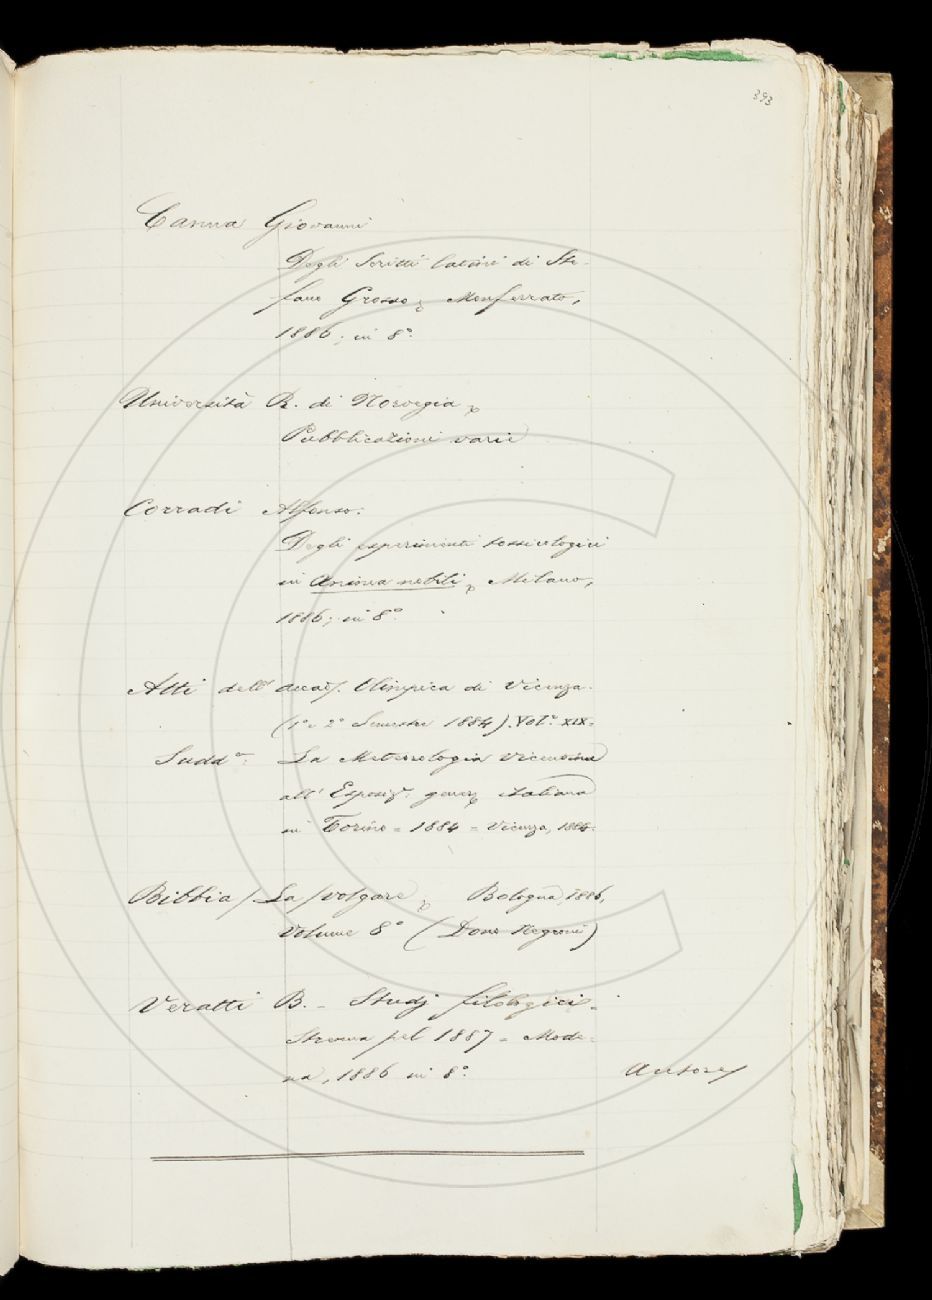 393
Canna Giovanni
Degli Scritti latini di Ste-
fano Grosso, Monferrato,
1886; in 8°.
Università R. di Norvegia,
Pubblicazioni varie
Corradi Alfonso:
Degli esperimenti tossicologici
in Anima nobili, Milano,
1886; in 8°.
Atti dell' Accad. Olimpica di Vicenza.
(1° e 2° Semestre 1884). Vol.e XIX.
Sudd.a: La Meteorologia Vicentina
all' Esposiz.e gener. italiana
in Torino = 1884 = Vicenza,
Bibbia / La / volgare, Bologna, 1886,
Volume 8° (Dono Negroni)
Veratti B. - Studj filologici -
Strenna pel 1887 = Mode-
na, 1886 in 8°. Autore